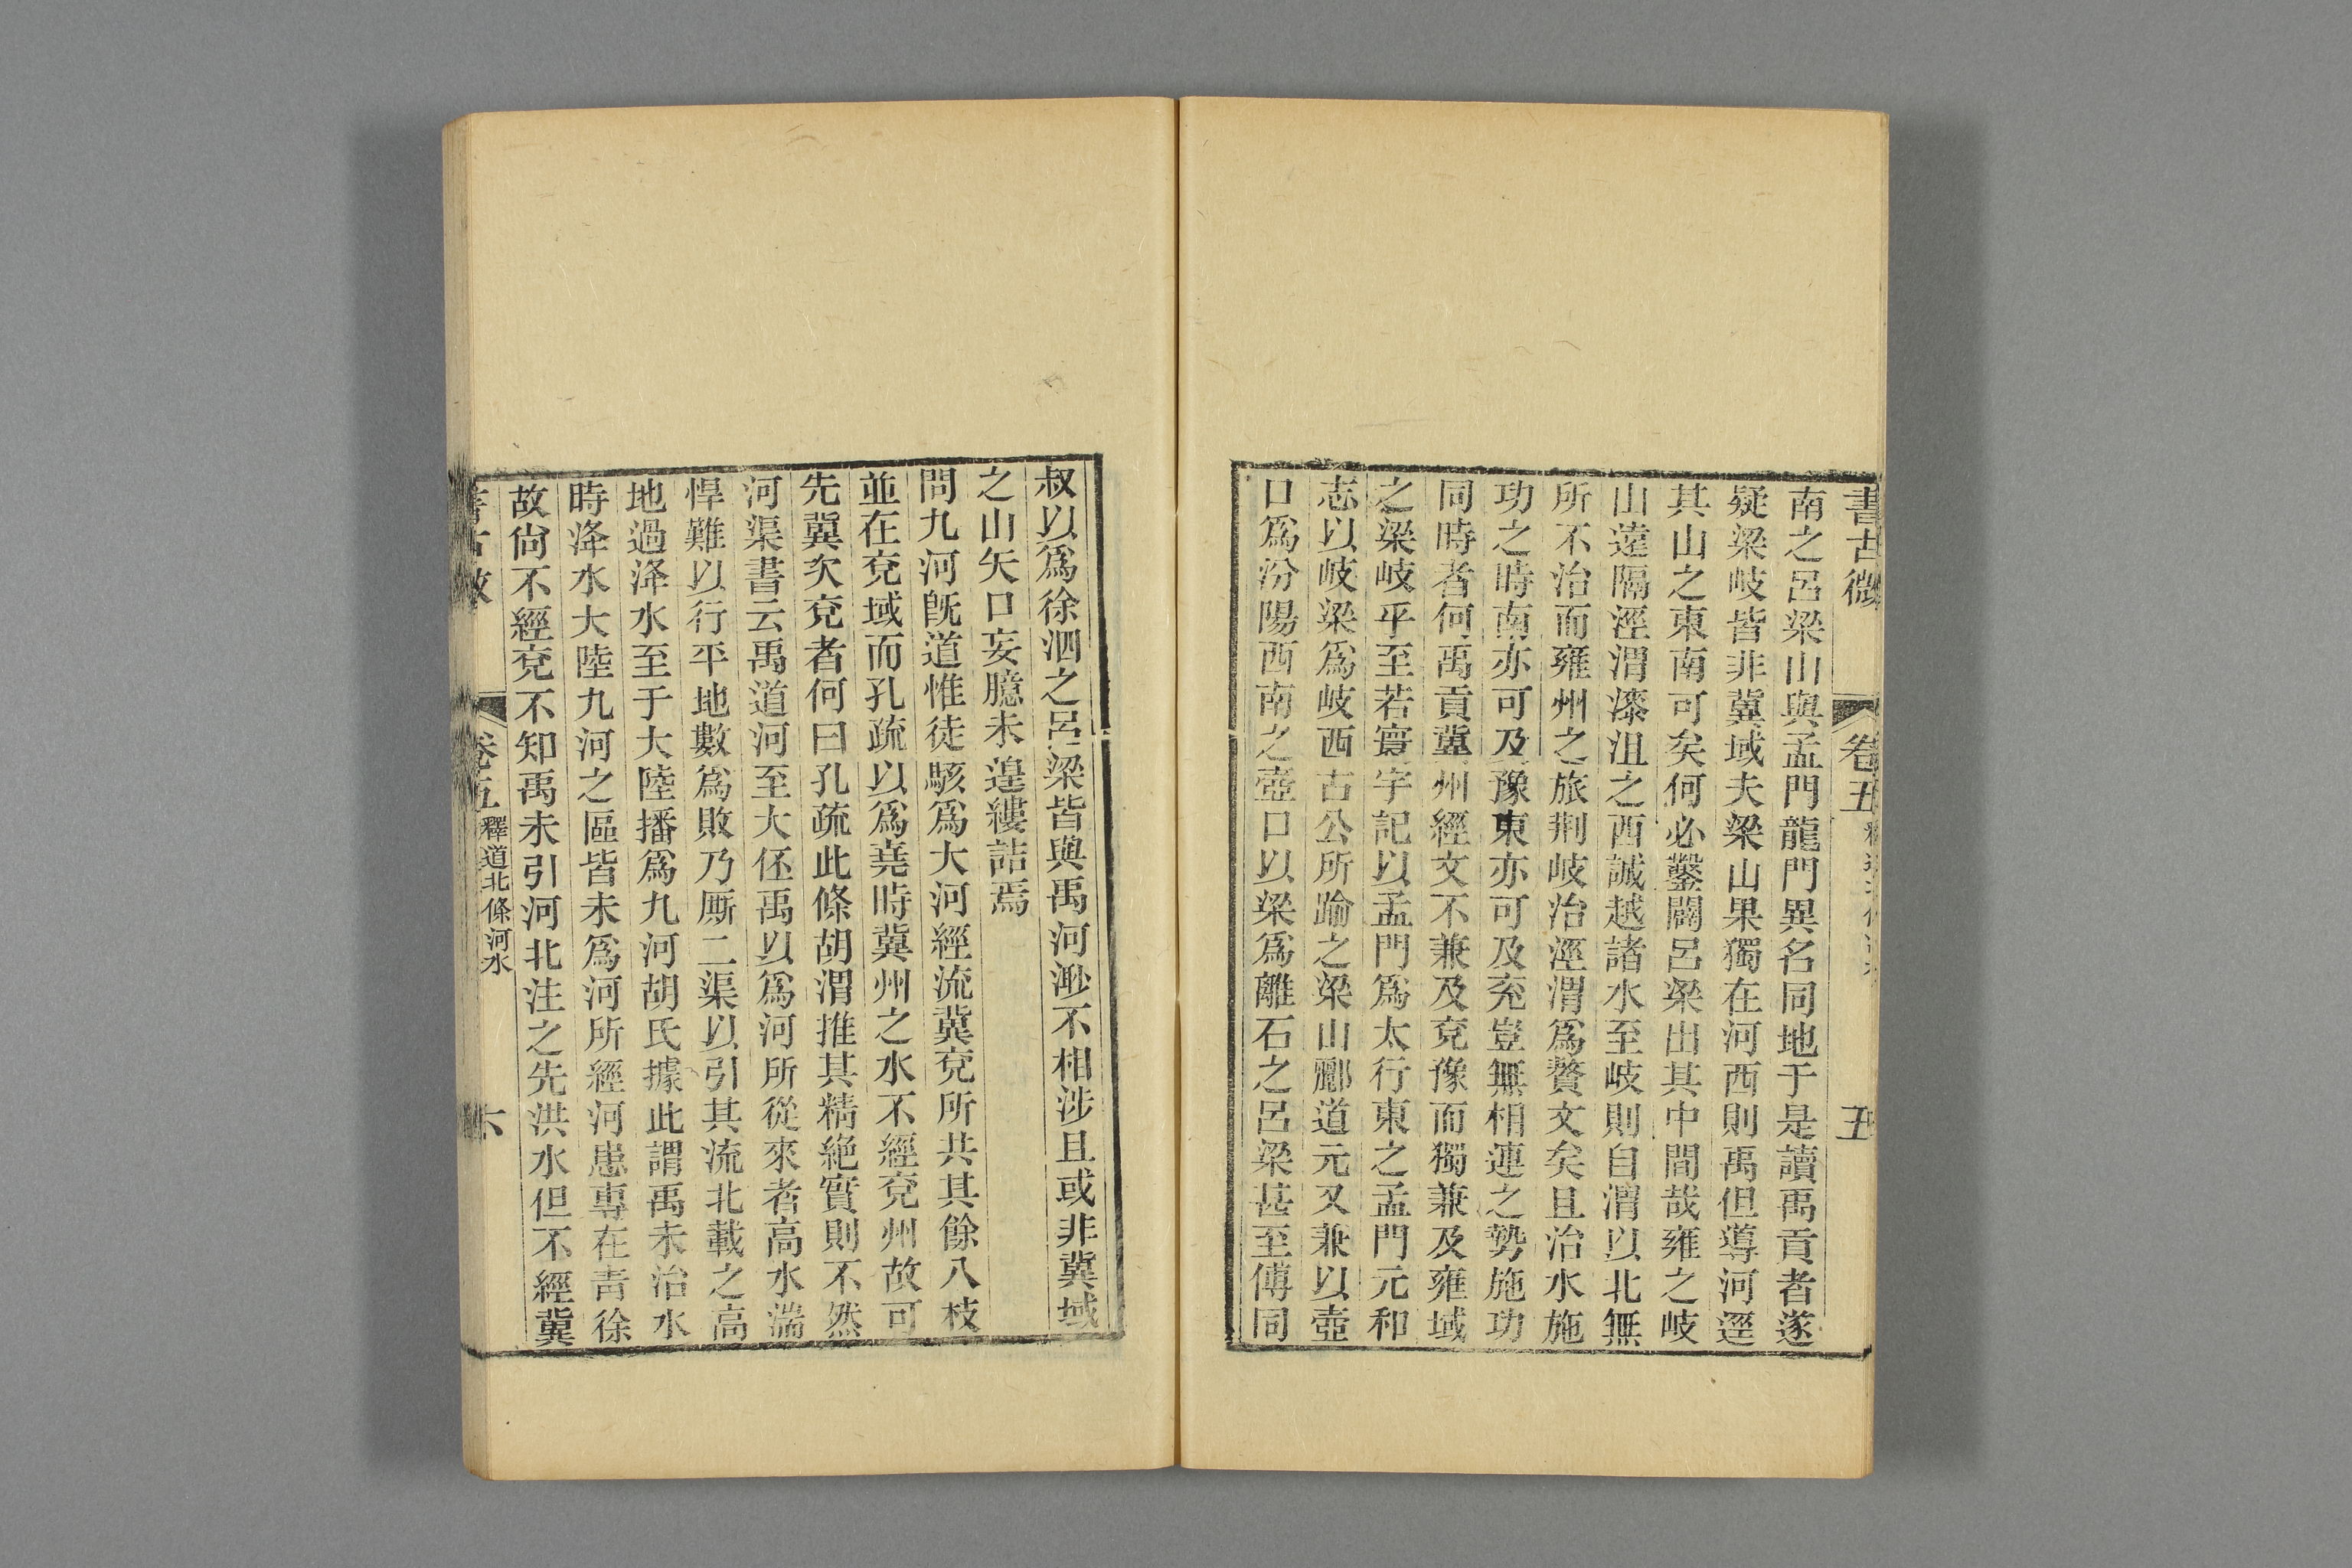 書古微
卷五
五
南之呂梁山與孟門龍門異名同地于是讀禹貢者遂
疑梁岐皆非冀域夫梁山果獨在河西則禹但導河逕
其山之東南可矣何必鑿闢呂梁出其中間哉雍之岐
山遠隔涇渭漆沮之西誠越諸水至岐則自渭以北無
所不治而雍州之旅荆岐治涇渭爲贅文矣且治水施
功之時南亦可及豫東亦可及兖豈無相連之勢施功
同時者何禹貢冀州經文不兼及兖豫而獨兼及雍域
之梁岐乎至若寰宇記以孟門爲太行東之孟門元和
志以岐梁爲岐西古公所踰之梁山酈道元又兼以壺
口爲汾陽西南之壺口以梁爲離石之呂梁甚至傅同
叔以爲徐泗之呂梁皆與禹河渺不相涉且或非冀域
之山矢口妄臆未遑縷詰焉
問九河旣道惟徒駭爲大河經流冀兖所共其餘八枝
並在兖域而孔疏以爲堯時冀州之水不經兖州故可
先冀次兖者何曰孔疏此條胡渭推其精絶實則不然
河渠書云禹道河至大伾禹以爲河所從來者高水湍
悍難以行平地數爲敗乃厮二渠以引其流北載之高
地過洚水至于大陸播爲九河胡氏據此謂禹未治水
時洚水大陸九河之區皆未爲河所經河患專在青徐
故尙不經兖不知禹未引河北注之先洪水但不經冀
卷五
釋道北條河水
六